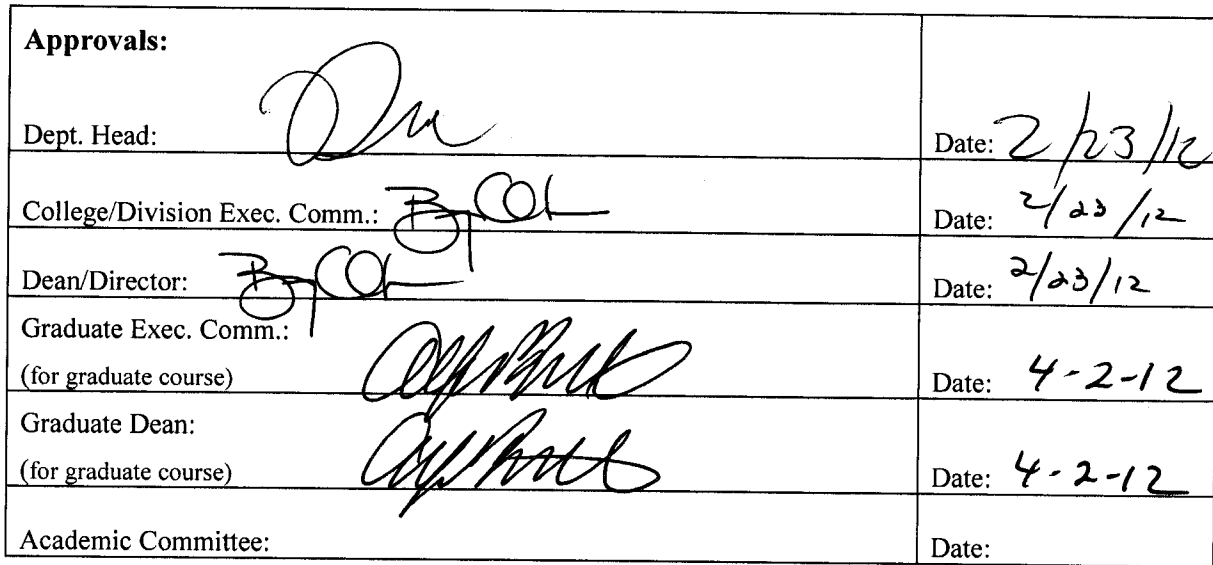 Approvals:
Dept. Head: Date: 2/23/12
College/Division Exec. Comm.: Date: 2/23/12
Dean/Director: Date: 2/23/12
Graduate Exec. Comm.:
(for graduate course) Date: 4-2-12
Graduate Dean:
(for graduate course) Date: 4-2-12
Academic Committee: Date: